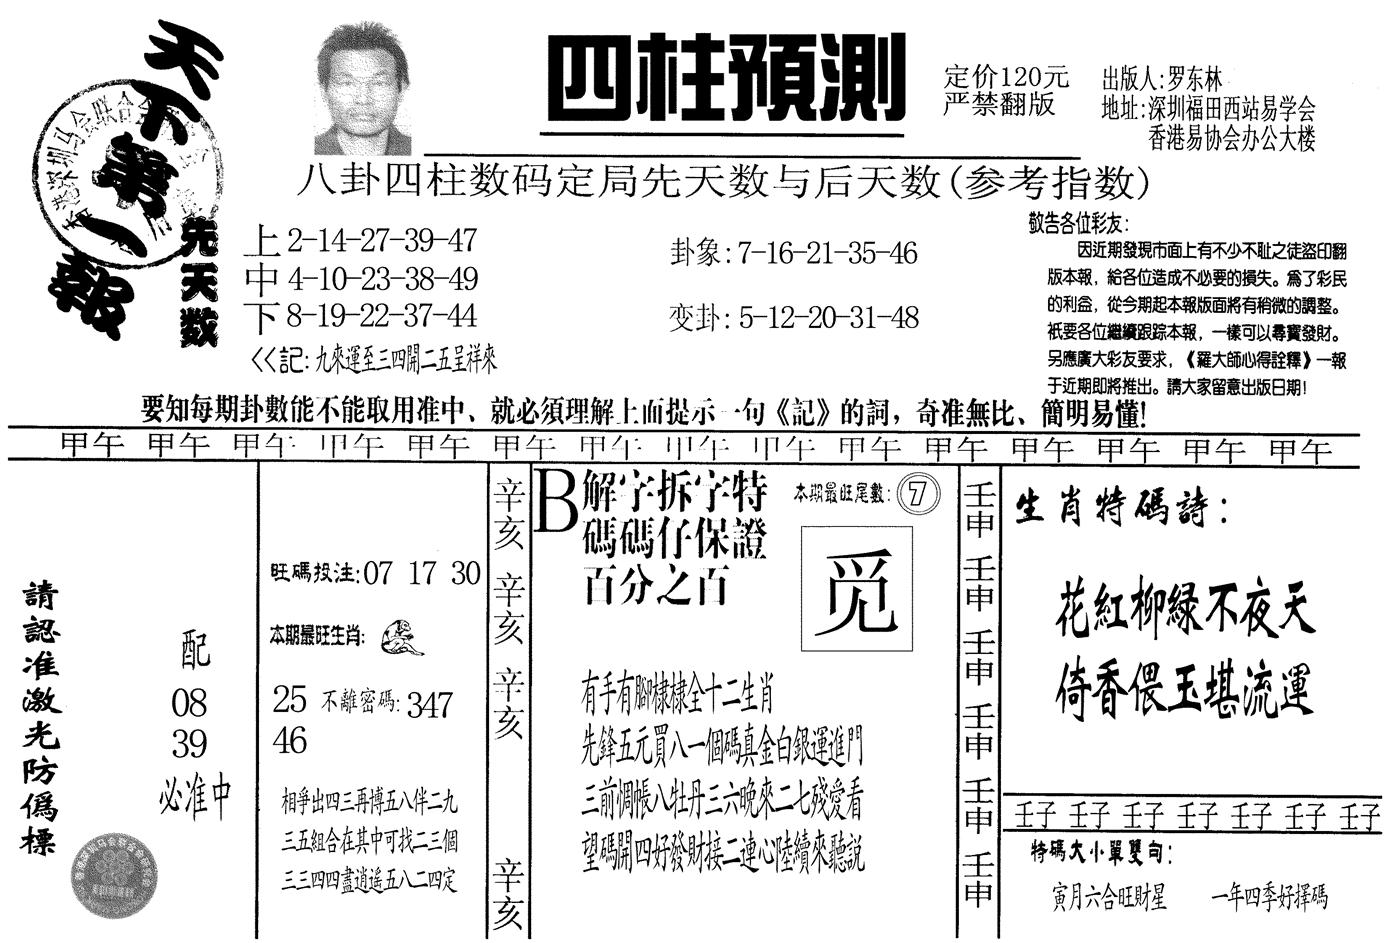 天下第一報
四柱預測
定价120元
严禁翻版
出版人:罗东林
地址:深圳福田西站易学会
香港易协会办公大楼
八卦四柱数码定局先天数与后天数(参考指数)
先天数
上 2-14-27-39-47
中 4-10-23-38-49
下 8-19-22-37-44
<<記:九來運至三四開二五呈祥來
卦象:7-16-21-35-46
变卦:5-12-20-31-48
敬告各位彩友:
因近期發現市面上有不少不耻之徒盜印翻
版本報，給各位造成不必要的損失。爲了彩民
的利益，從今期起本報版面將有稍微的調整。
衹要各位繼續跟踪本報，一樣可以尋寶發財。
另應廣大彩友要求，《羅大師心得詮釋》一報
于近期即將推出。請大家留意出版日期!
要知每期卦數能不能取用准中、就必須理解上面提示一句《記》的詞，奇准無比、簡明易懂!
甲午 甲午 甲午 甲午 甲午 甲午 甲午 甲午 甲午 甲午 甲午 甲午 甲午 甲午 甲午
請認准激光防僞標
配
08
39
必准中
旺碼投注:07 17 30
本期最旺生肖:
25 不離密碼:347
46
相爭出四三再博五八伴二九
三五組合在其中可找二三個
三三四四盡逍遙五八二四定
辛亥 辛亥 辛亥 辛亥
B
解字拆字特
碼碼仔保證
百分之百
本期最旺尾數:7
觅
有手有腳棣棣全十二生肖
先鋒五元買八一個碼真金白銀運進門
三前惆悵八牡丹三六晚來二七殘愛看
望碼開四好發財接二連心陸續來聽説
壬申 壬申 壬申 壬申 壬申 壬申
生肖特碼詩:
花紅柳緑不夜天
倚香偎玉堪流運
壬子 壬子 壬子 壬子 壬子 壬子 壬子
特碼大小單雙句:
寅月六合旺財星 一年四季好擇碼